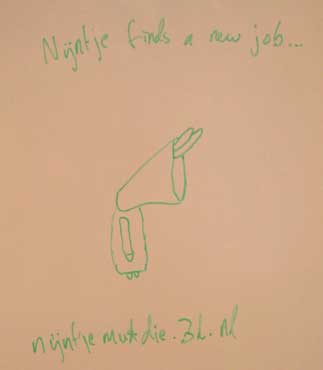 Nijntje finds a new job...
nijntjemustdie.3L.nl